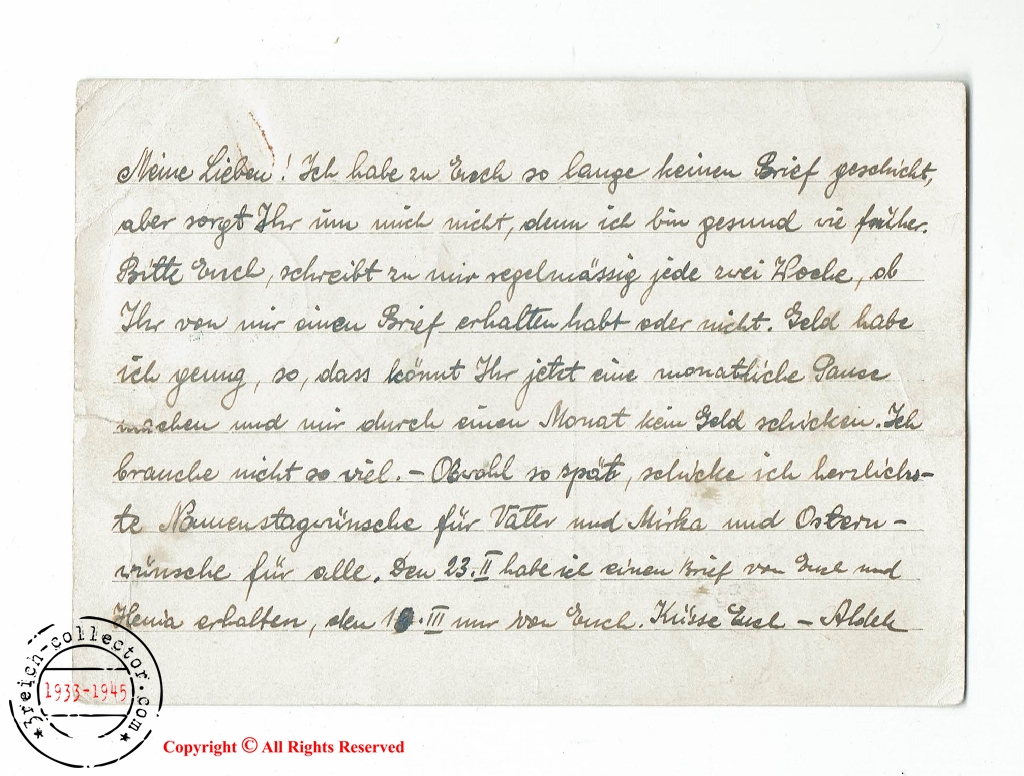 Meine Lieben! Ich habe zu Euch so lange keinen Brief geschickt,
aber sorgt Ihr um mich nicht, denn ich bin gesund wie früher.
Bitte Euch, schreibt zu mir regelmässig jede zwei Woche, ob
Ihr von mir einen Brief erhalten habt oder nicht. Geld habe
ich genug, so, dass könnt Ihr jetzt eine monatliche Pause
machen und mir durch einen Monat kein Geld schicken. Ich
brauche nicht so viel. – Obwohl so spät, schicke ich herzlichs-
te Namenstagwünsche für Vater und Mirka und Ostern-
wünsche für alle. Den 23.II habe ich einen Brief von Euch und
Henia erhalten, den III nur von Euch. Küsse Euch –
3reich-collector.com
1933-1945
Copyright © All Rights Reserved